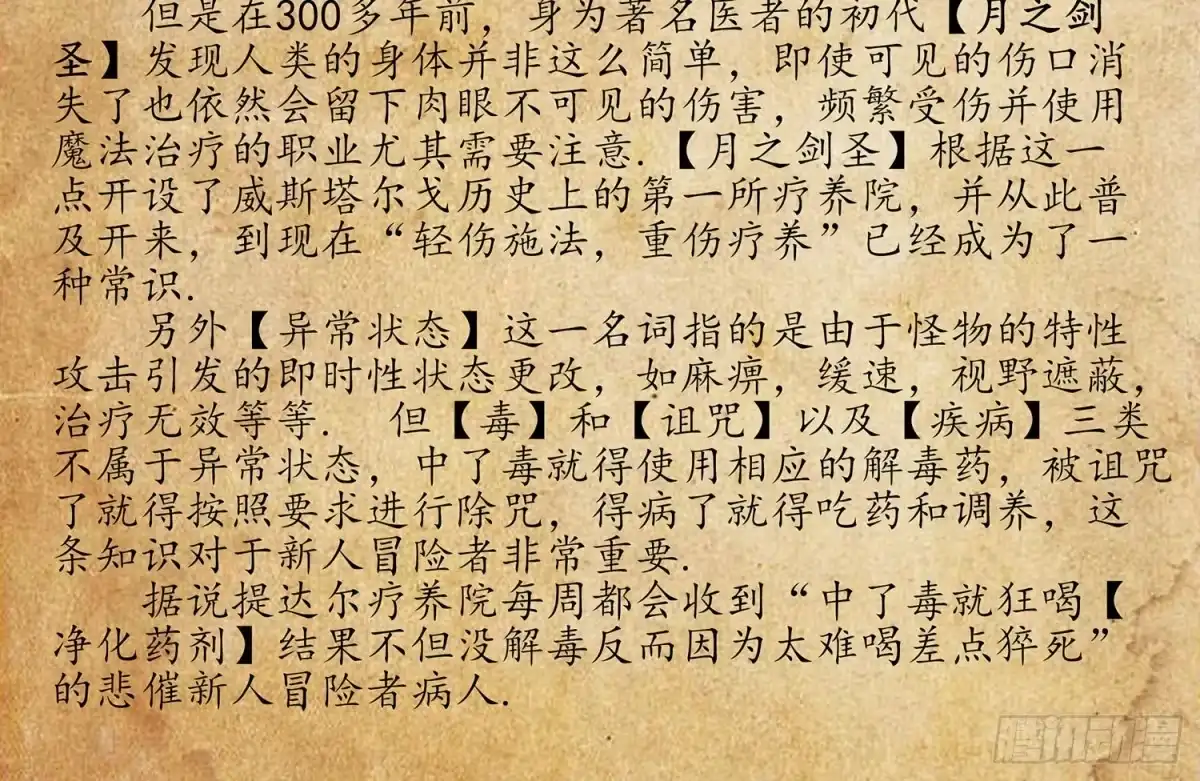 但是在300多年前，身为著名医者的初代【月之剑
圣】发现人类的身体并非这么简单，即使可见的伤口消
失了也依然会留下肉眼不可见的伤害，频繁受伤并使用
魔法治疗的职业尤其需要注意.【月之剑圣】根据这一
点开设了威斯塔尔戈历史上的第一所疗养院，并从此普
及开来，到现在“轻伤施法，重伤疗养”已经成为了一
种常识.
另外【异常状态】这一名词指的是由于怪物的特性
攻击引发的即时性状态更改，如麻痹，缓速，视野遮蔽，
治疗无效等等. 但【毒】和【诅咒】以及【疾病】三类
不属于异常状态，中了毒就得使用相应的解毒药，被诅咒
了就得按照要求进行除咒，得病了就得吃药和调养，这
条知识对于新人冒险者非常重要.
据说提达尔疗养院每周都会收到“中了毒就狂喝【
净化药剂】结果不但没解毒反而因为太难喝差点猝死”
的悲催新人冒险者病人.
腾讯动漫